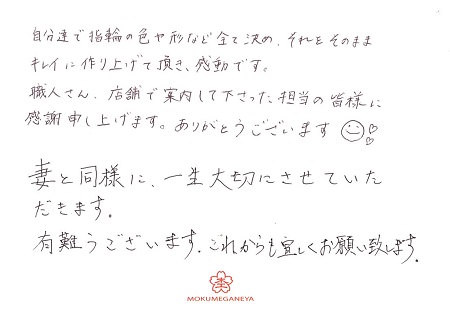 自分達で指輪の色や形など全て決め、それをそのまま
キレイに作り上げて頂き、感動です。
職人さん、店舗で案内して下さった担当の皆様に
感謝申し上げます。ありがとうございます
妻と同様に、一生大切にさせていた
だきます。
有難うございます。これからも宜しくお願い致します。
MOKUMEGANEYA